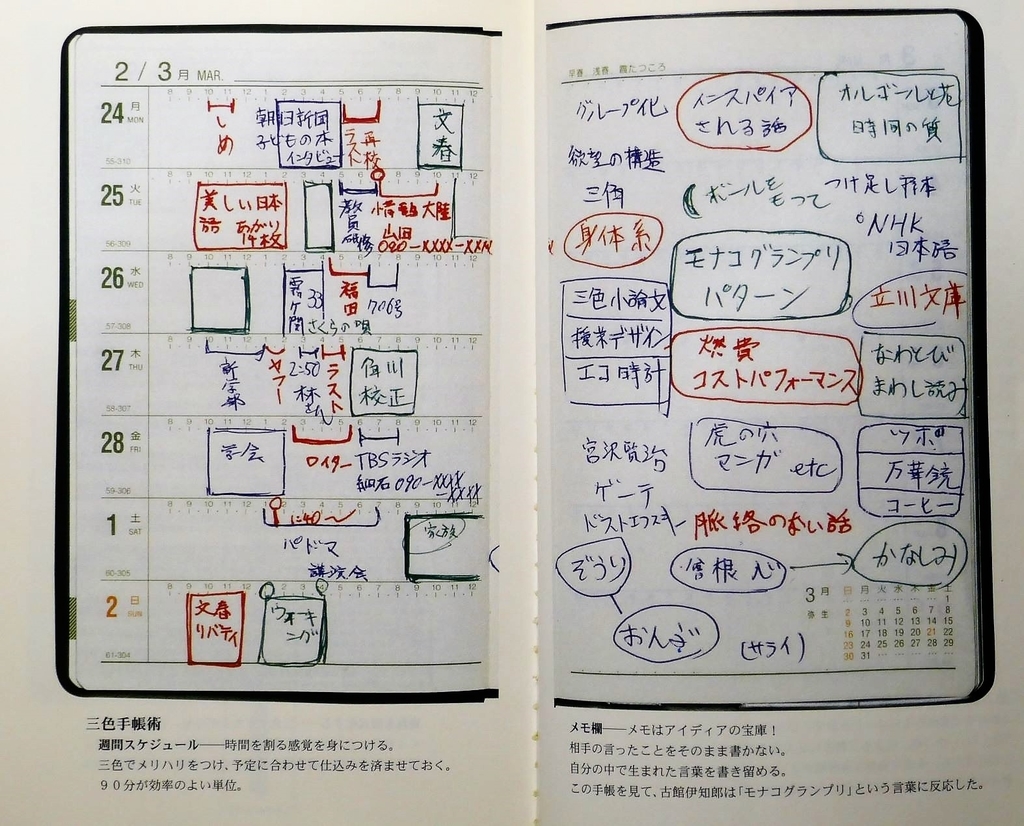 2 / 3月 MAR.
24 月 MON
しめ
朝日新聞
子どもの本
インタビュー
ラスト
再校
文春
55-310
25 火 TUE
美しい日本
語 あがり
14枚
教員
研修
情熱大陸
山田
090-XXXX-XXXX
56-309
26 水 WED
霞ヶ関
33
さくらの唄
福田
706号
57-308
27 木 THU
新学部
ヤフー
2:50
林さん
ラスト
角川
校正
58-307
28 金 FRI
学会
ロイター
TBSラジオ
細石 090-XXXX
-XXXX
59-306
1 土 SAT
1:40〜
パドマ
講演会
家族
60-305
2 日 SUN
文春
リバティ
ウォーキング
61-304
三色手帳術
週間スケジュール――時間を割る感覚を身につける。
三色でメリハリをつけ、予定に合わせて仕込みを済ませておく。
90分が効率のよい単位。
早春 浅春 霞たつころ
グループ化
インスパイア
される話
オルゴールと花
時間の質
欲望の構造
三角
ボールを
もって
つけ足し
NHK
日本語
身体系
モナコグランプリ
パターン
立川文庫
三色小論文
授業デザイン
エコ時計
燃費
コストパフォーマンス
なわとび
まわし読み
宮沢賢治
ゲーテ
ドストエフスキー
虎の穴
マンガ etc
ツボ
万華鏡
コーヒー
脈絡のない話
ぞうり
曽根心
かなしみ
おんぶ
(サライ)
3月 弥生
日 月 火 水 木 金 土
1
2 3 4 5 6 7 8
9 10 11 12 13 14 15
16 17 18 19 20 21 22
23 24 25 26 27 28 29
30 31
メモ欄――メモはアイディアの宝庫！
相手の言ったことをそのまま書かない。
自分の中で生まれた言葉を書き留める。
この手帳を見て、古館伊知郎は「モナコグランプリ」という言葉に反応した。